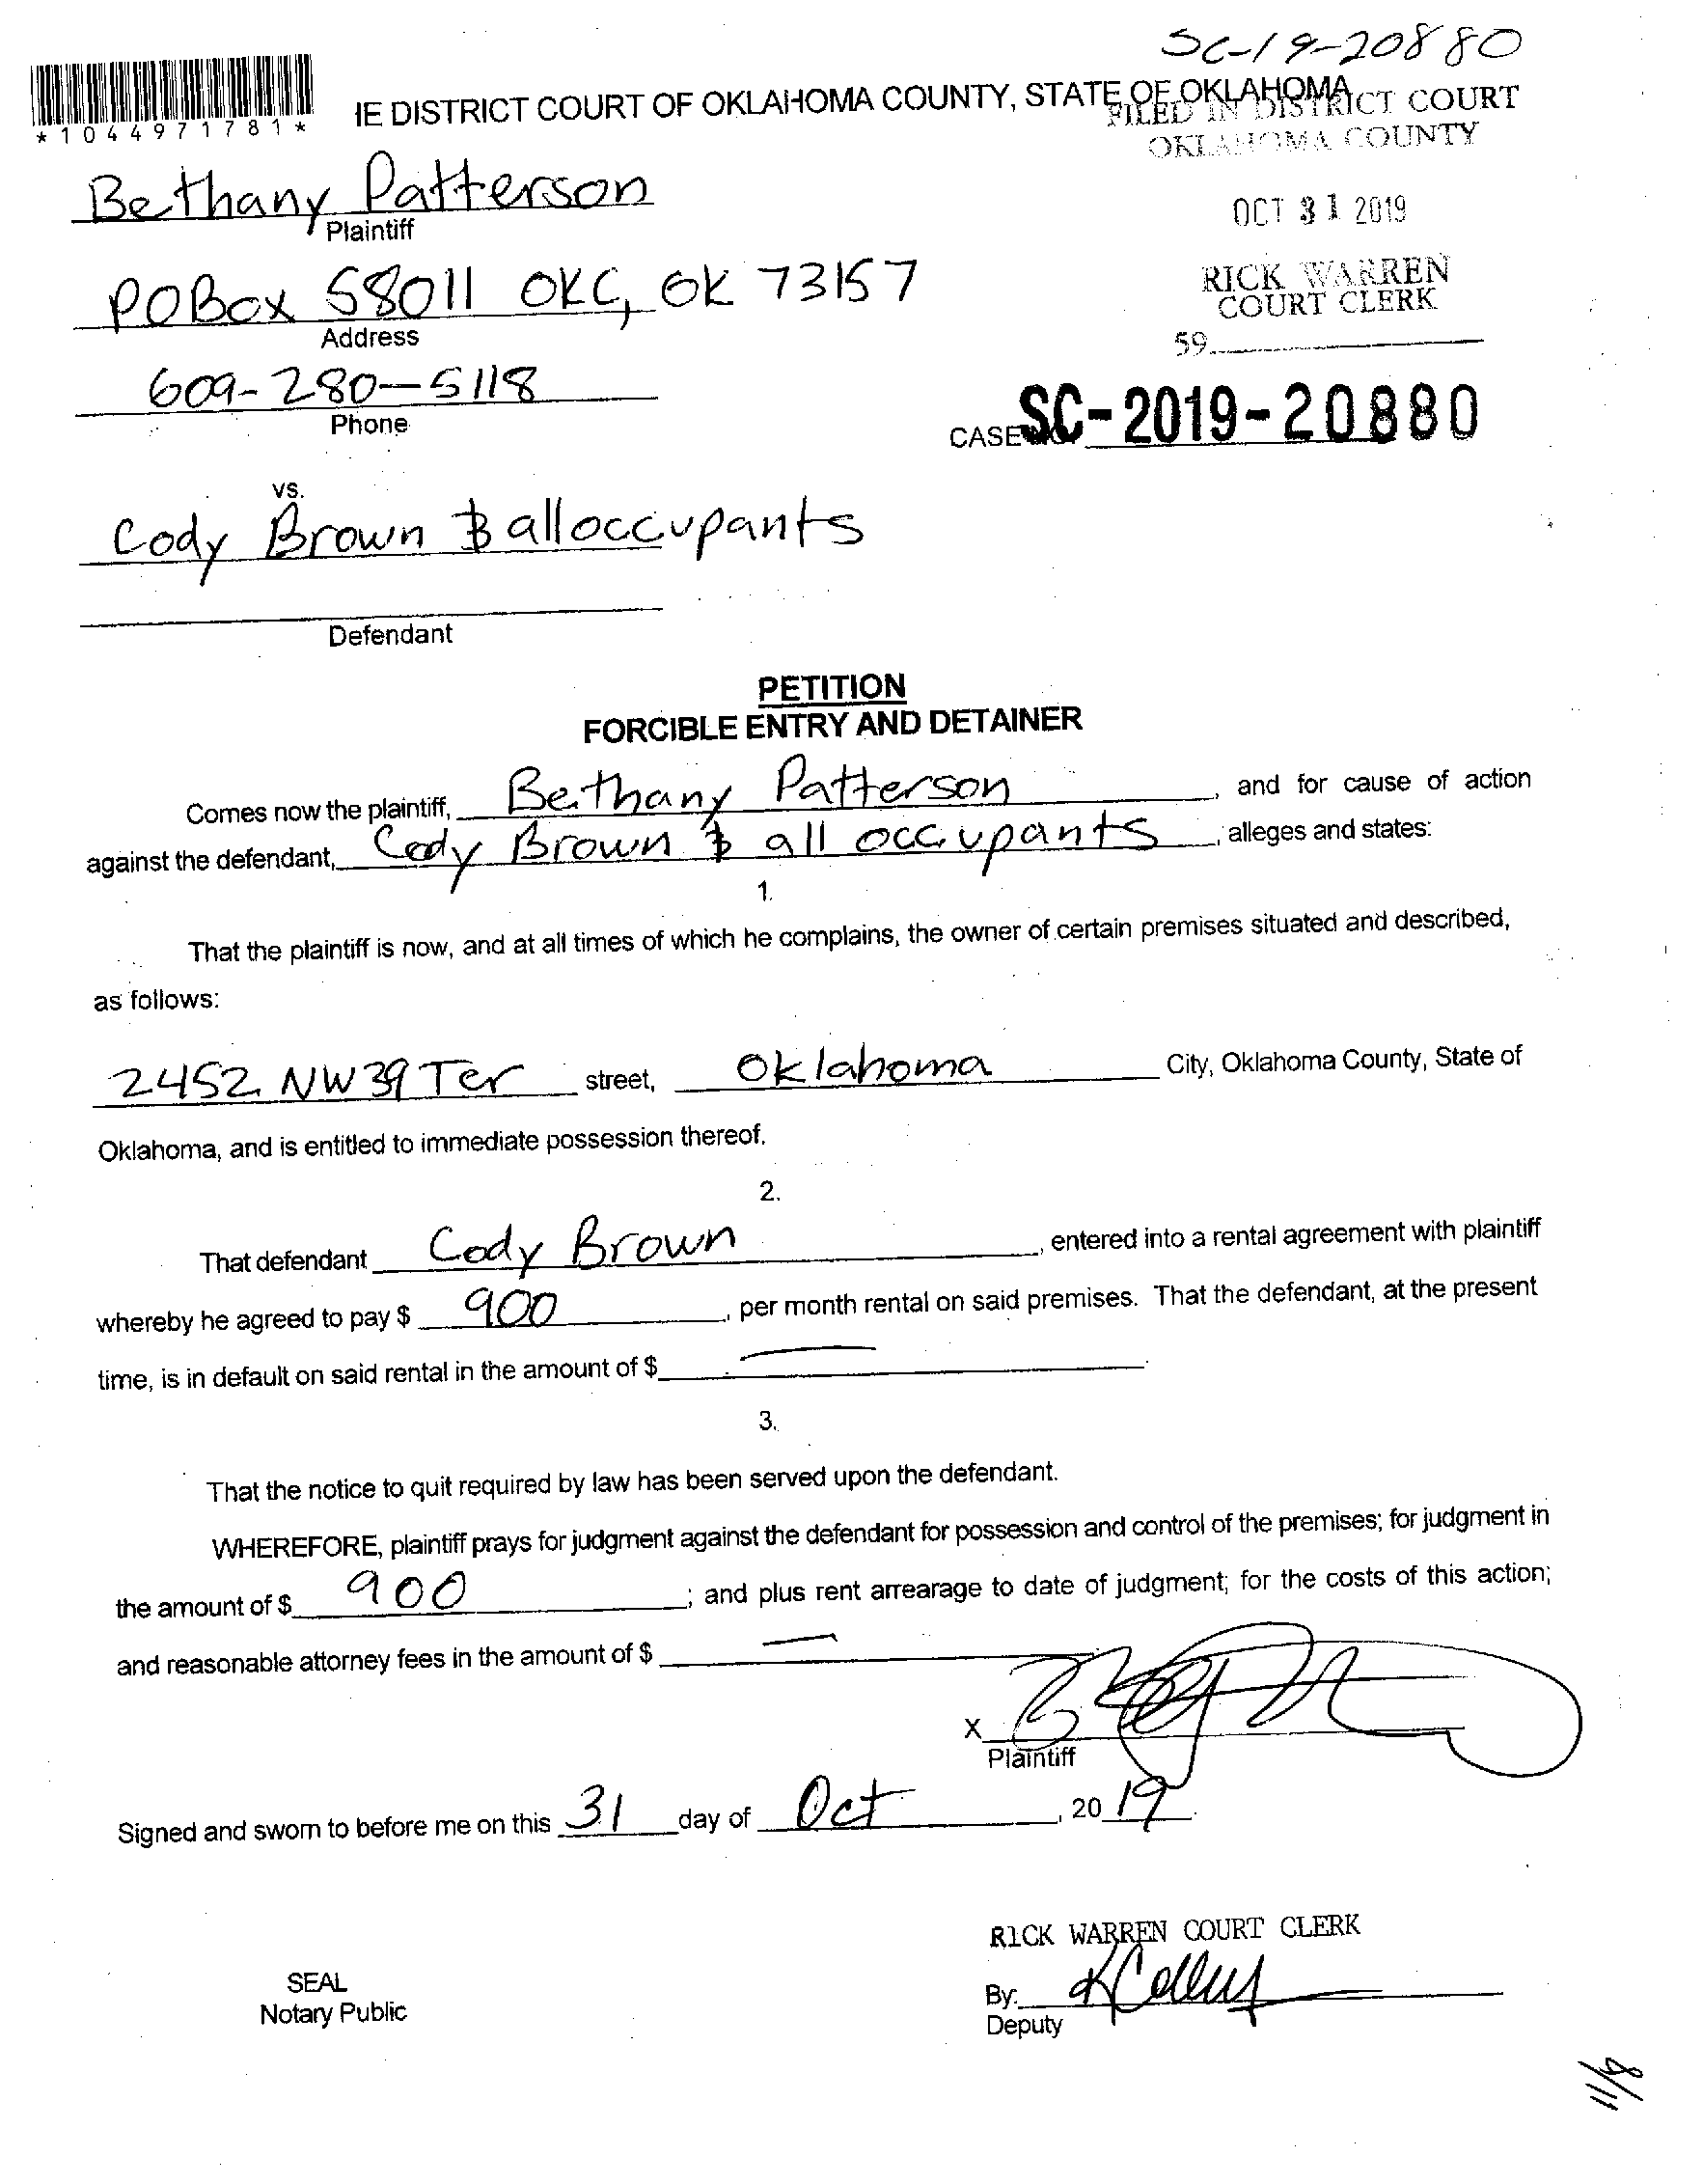 SC-19-20880
*1044971781*
IE DISTRICT COURT OF OKLAHOMA COUNTY, STATE OF OKLAHOMA
FILED IN DISTRICT COURT
OKLAHOMA COUNTY
Bethany Patterson
Plaintiff
OCT 31 2019
POBox 58011 OKC, OK 73157
Address
RICK WARREN
COURT CLERK
59
609-280-5118
Phone
CASE SC-2019-20880
vs.
Cody Brown & all occupants
Defendant
PETITION
FORCIBLE ENTRY AND DETAINER
Comes now the plaintiff, Bethany Patterson, and for cause of action
against the defendant, Cody Brown & all occupants, alleges and states:
1.
That the plaintiff is now, and at all times of which he complains, the owner of certain premises situated and described,
as follows:
2452 NW 39 Ter street, Oklahoma City, Oklahoma County, State of
Oklahoma, and is entitled to immediate possession thereof.
2.
That defendant Cody Brown, entered into a rental agreement with plaintiff
whereby he agreed to pay $ 900, per month rental on said premises. That the defendant, at the present
time, is in default on said rental in the amount of $ —
3.
That the notice to quit required by law has been served upon the defendant.
WHEREFORE, plaintiff prays for judgment against the defendant for possession and control of the premises; for judgment in
the amount of $ 900; and plus rent arrearage to date of judgment; for the costs of this action;
and reasonable attorney fees in the amount of $ —
X
Plaintiff
Signed and sworn to before me on this 31 day of Oct, 2019.
RICK WARREN COURT CLERK
SEAL
Notary Public
By:
Deputy
8/11